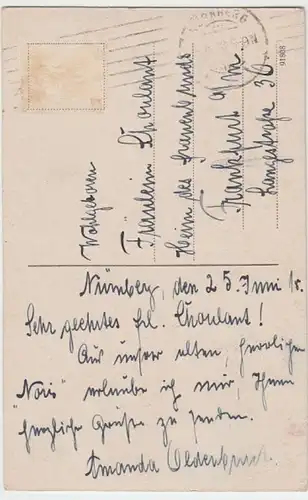 Wohlgeboren
Fräulein Choulant
Heim des Frauenbunds
Frankfurt a/m.
Langestraße 36
91808
Nürnberg, den 25. Juni
Sehr geehrtes Frl. Choulant!
Aus unsrer alten, herrlichen
"Noris" erlaube ich mir, Ihnen
herzliche Grüße zu senden.
Amanda